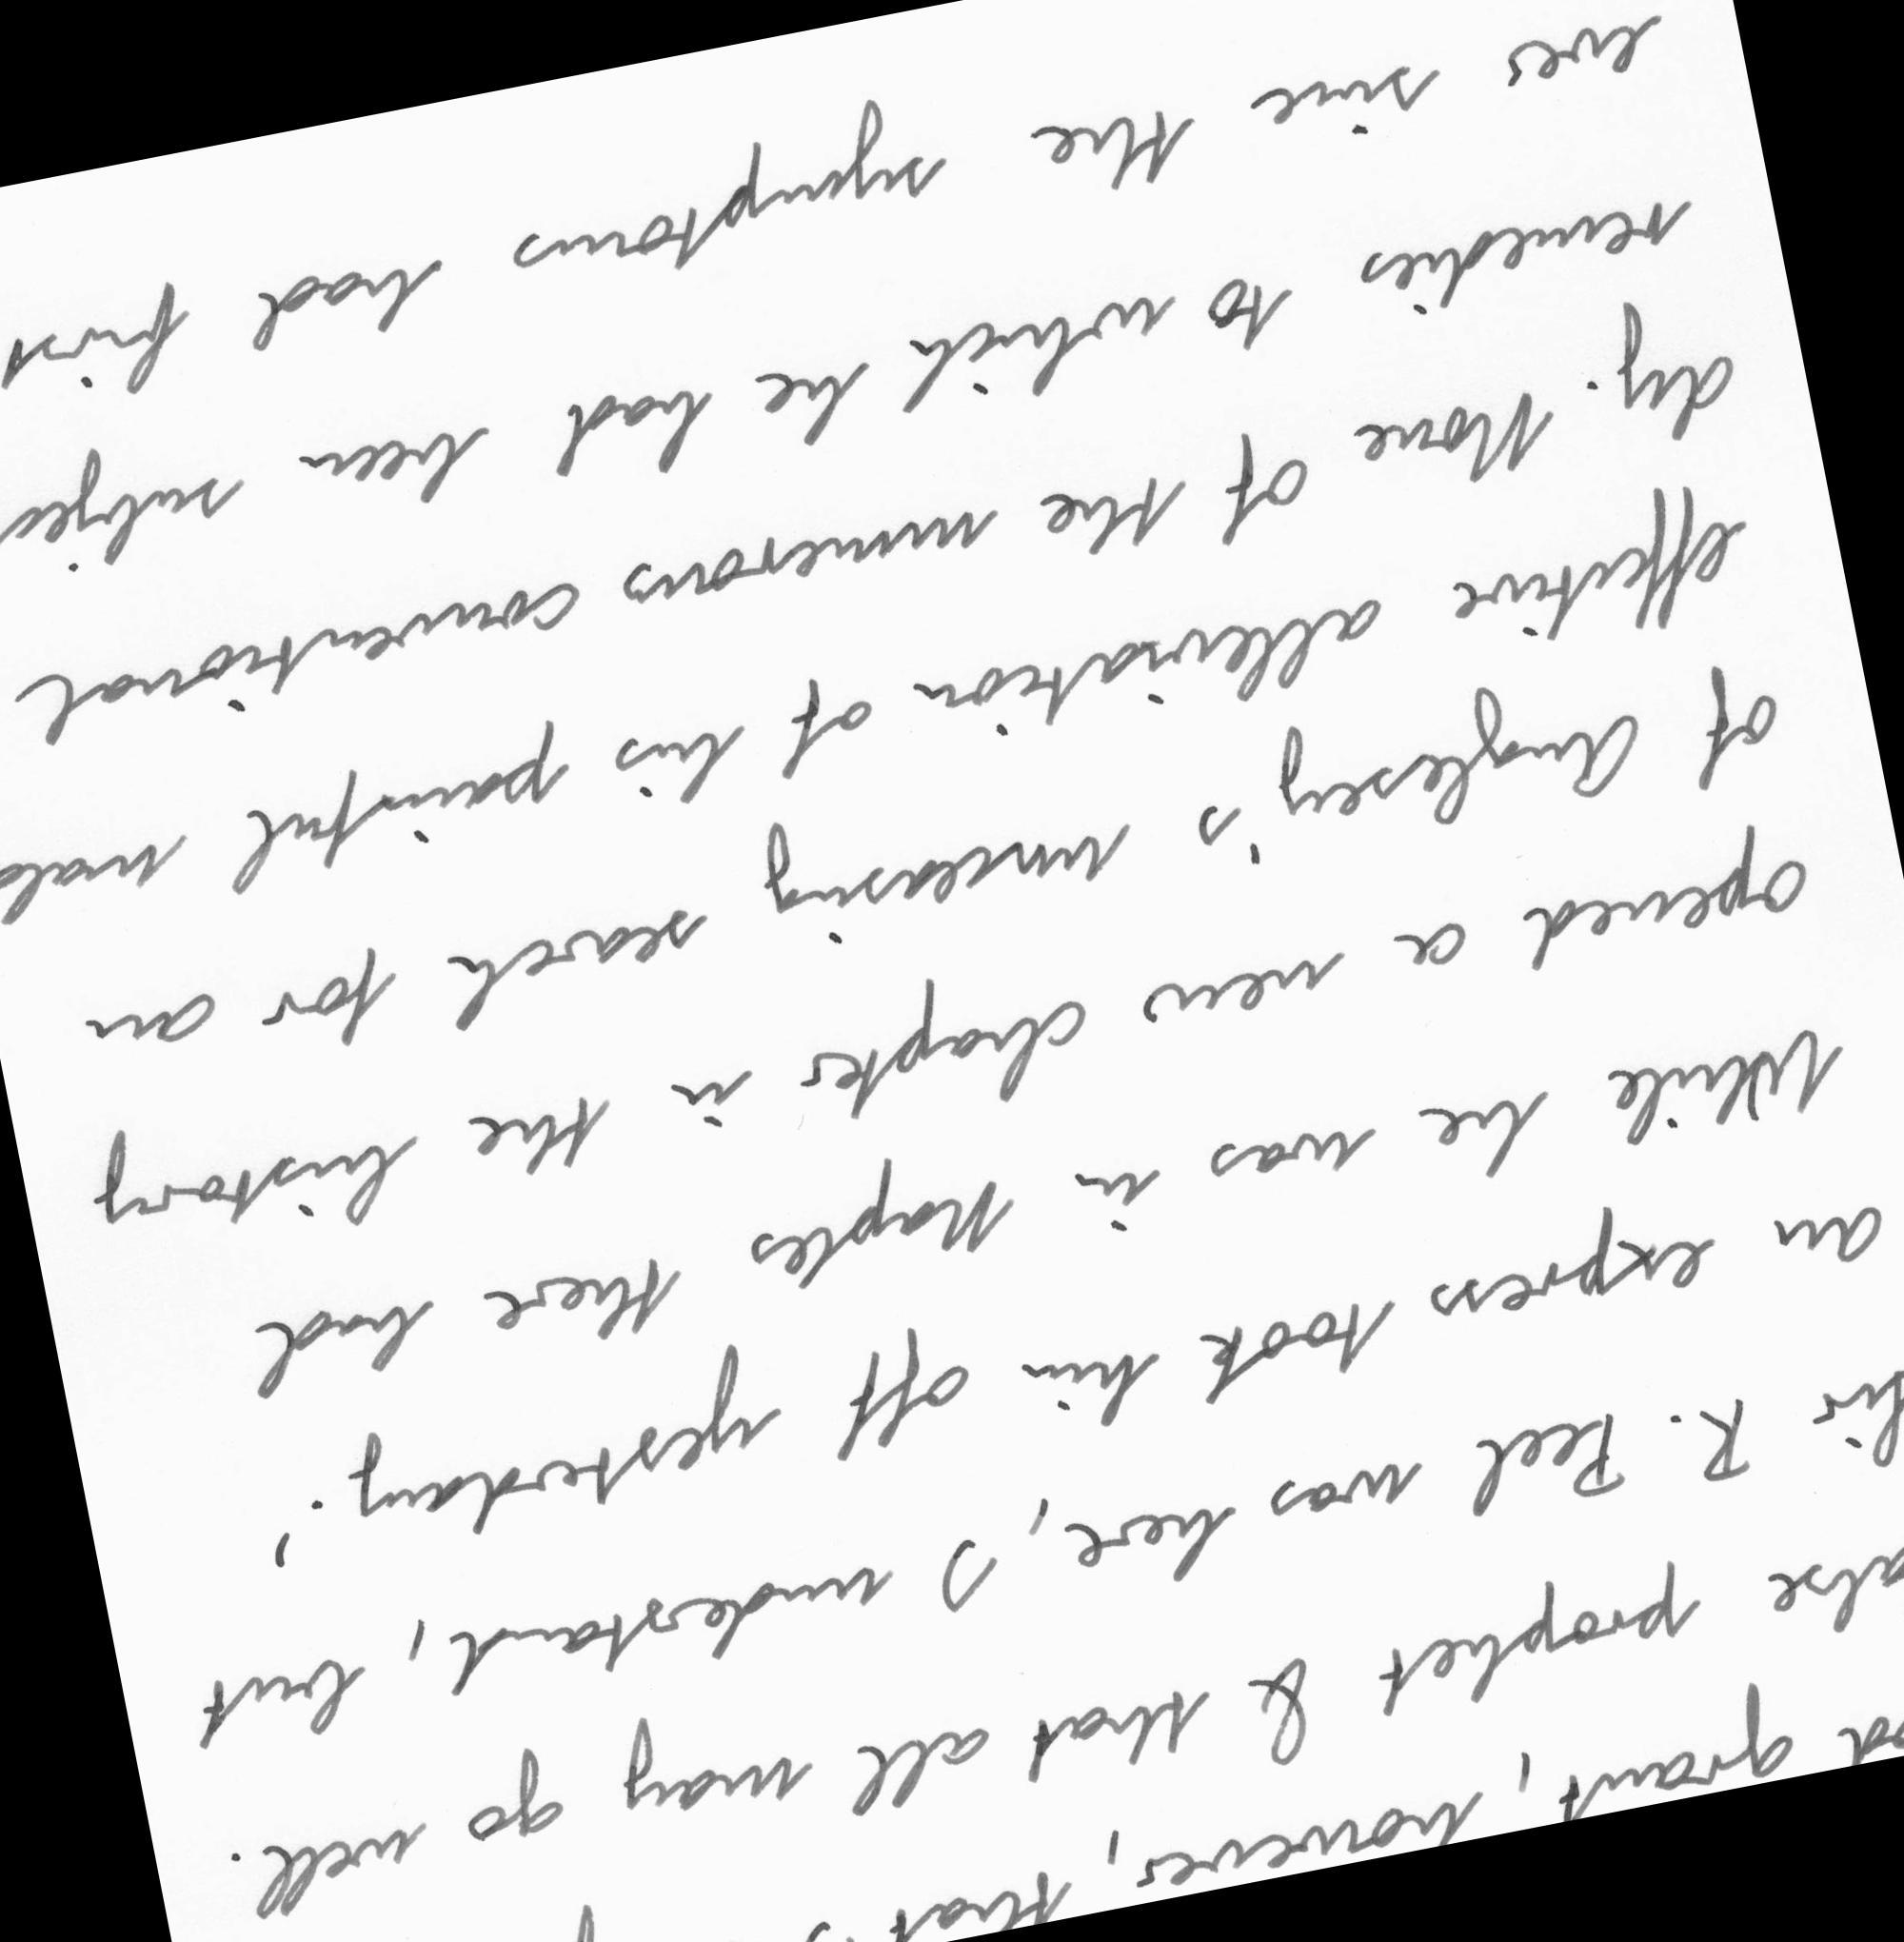 grant, however, that
prophet & that all may go well.
Sir R. Peel was here, I understand, but
an express took him off yesterday.'
While he was in Naples there had
opened a new chapter in the history
of Anglesey's unceasing search for an
effective alleviation of his painful mala
dy. None of the numerous conventional
remedies to which he had been subjec
ever since the symptoms had first